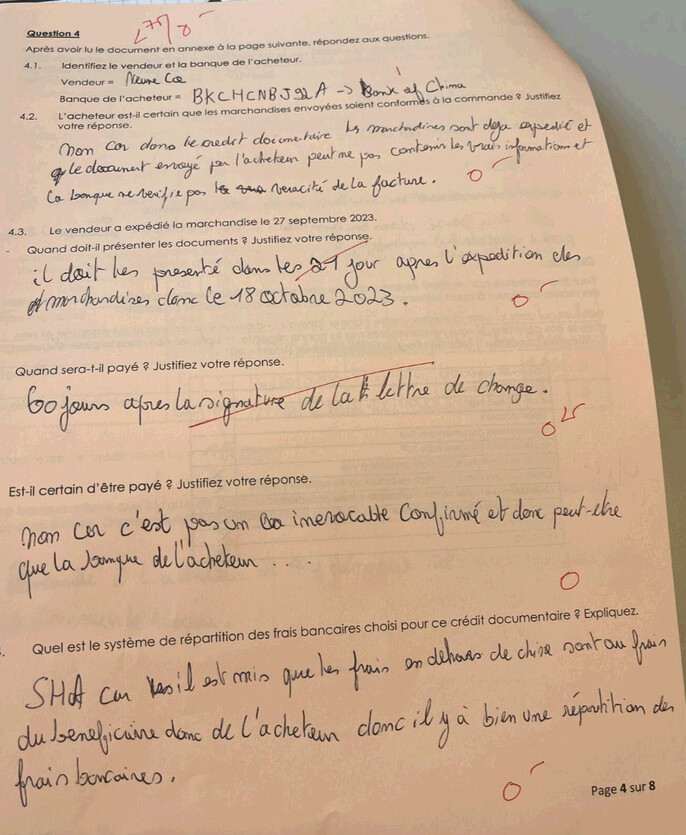 Question 4
Après avoir lu le document en annexe à la page suivante, répondez aux questions.
4.1. Identifiez le vendeur et la banque de l'acheteur.
Vendeur = Neune Coe
Banque de l'acheteur = BKCHCNBJ92A -> Bank of China
4.2. L'acheteur est-il certain que les marchandises envoyées soient conformes à la commande ? Justifiez
votre réponse.
non car dans le credit documentaire les marchandises sont deja expedié et
que le document envoyé par l'acheteur peut ne pas contenir les vrais informations et
la banque ne verifie pas la veracité de la facture.
0
4.3. Le vendeur a expédié la marchandise le 27 septembre 2023.
- Quand doit-il présenter les documents ? Justifiez votre réponse.
il doit les presenté dans les 21 jour apres l'expedition des
marchandises donc le 18 octobre 2023.
0
Quand sera-t-il payé ? Justifiez votre réponse.
60 jours apres la signature de la lettre de change.
0
Est-il certain d'être payé ? Justifiez votre réponse.
non car c'est pas un irrevocable confirmé et donc peut-etre
que la banque de l'acheteur ....
0
Quel est le système de répartition des frais bancaires choisi pour ce crédit documentaire ? Expliquez.
SHA car il est mis que les frais en dehors de chine sont au frais
du beneficiaire donc de l'acheteur donc il y à bien une répartition des
frais bancaires.
0
Page 4 sur 8